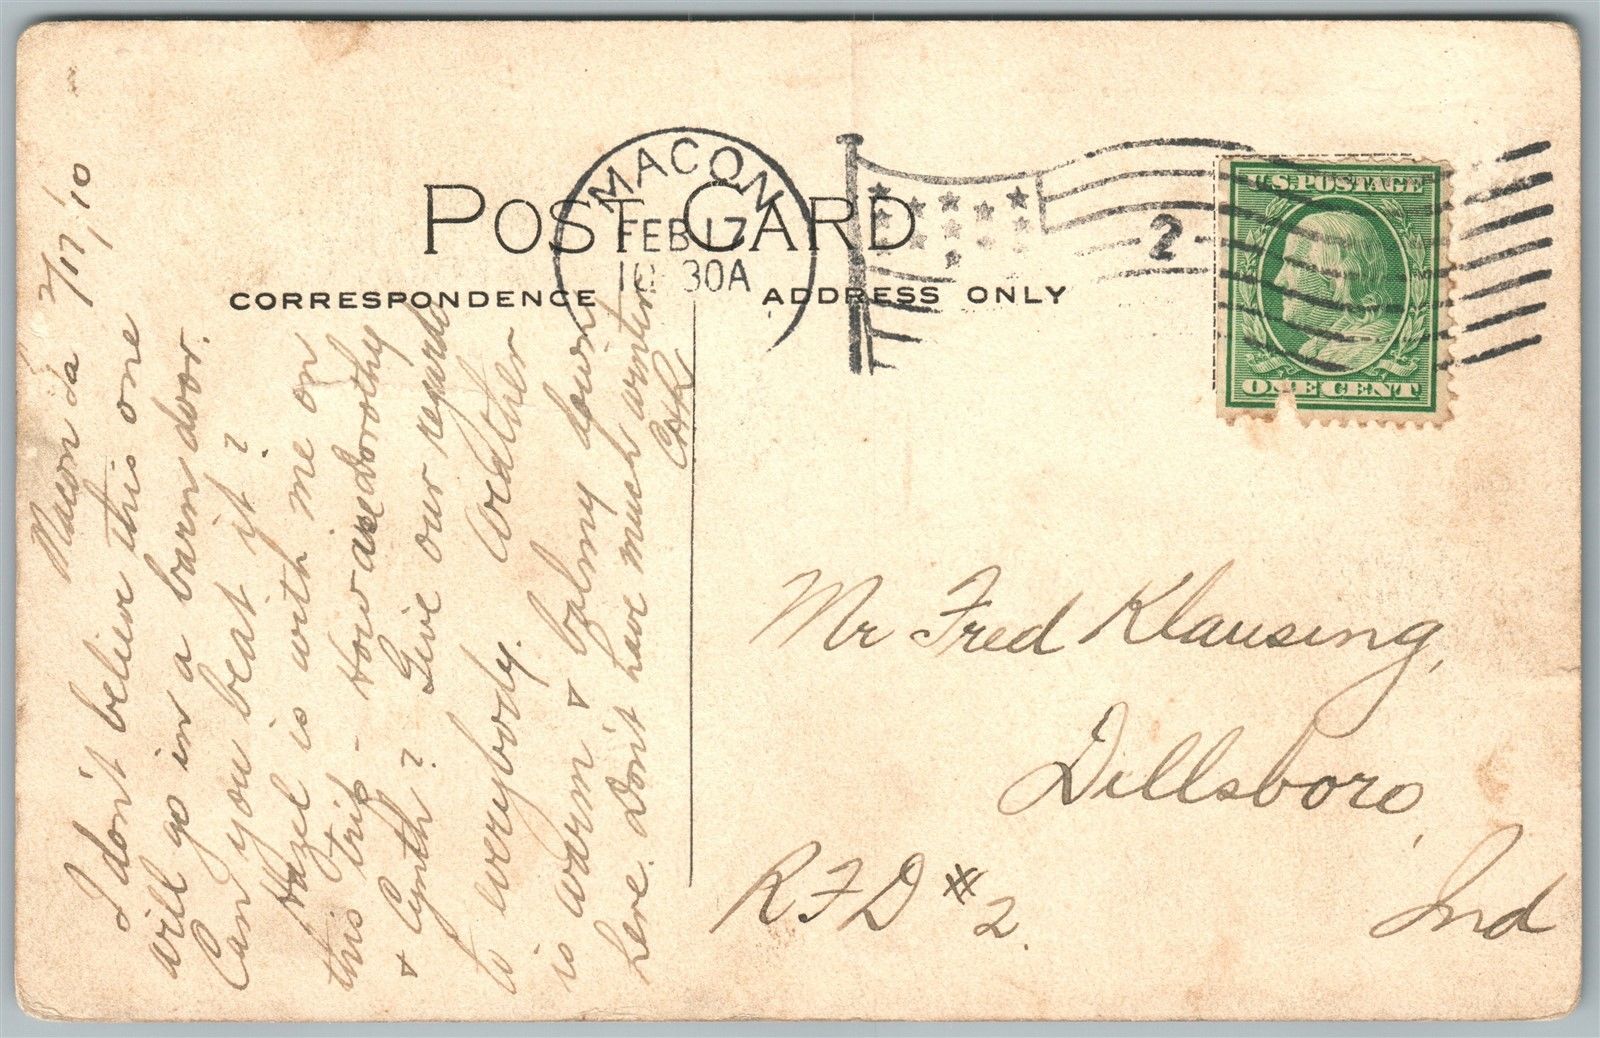 POST CARD
CORRESPONDENCE
ADDRESS ONLY
MACON
FEB 17
10 30A
2
U.S. POSTAGE
ONE CENT
Macon Ga 2/17/'10
I don't believe this one
will go in a barn door.
Can you beat it?
Hazel is with me on
this trip - How are Dorothy
& Cynth? Give our regards
to everybody. Weather
is warm & balmy down
here. Don't have much winter
Mr Fred Klausing,
Dillsboro,
RFD #2.
Ind